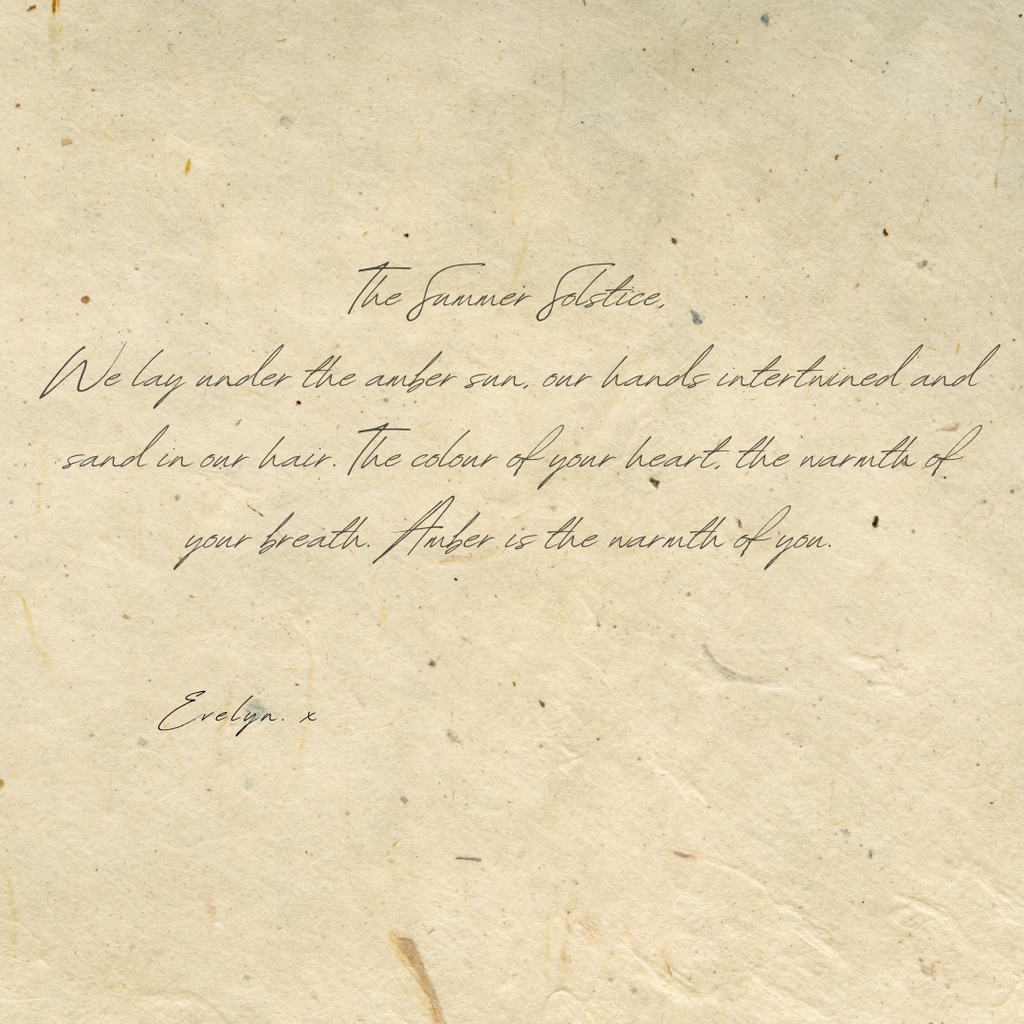 The Summer Solstice,
We lay under the amber sun, our hands intertwined and
sand in our hair. The colour of your heart, the warmth of
your breath. Amber is the warmth of you.
Evelyn. x